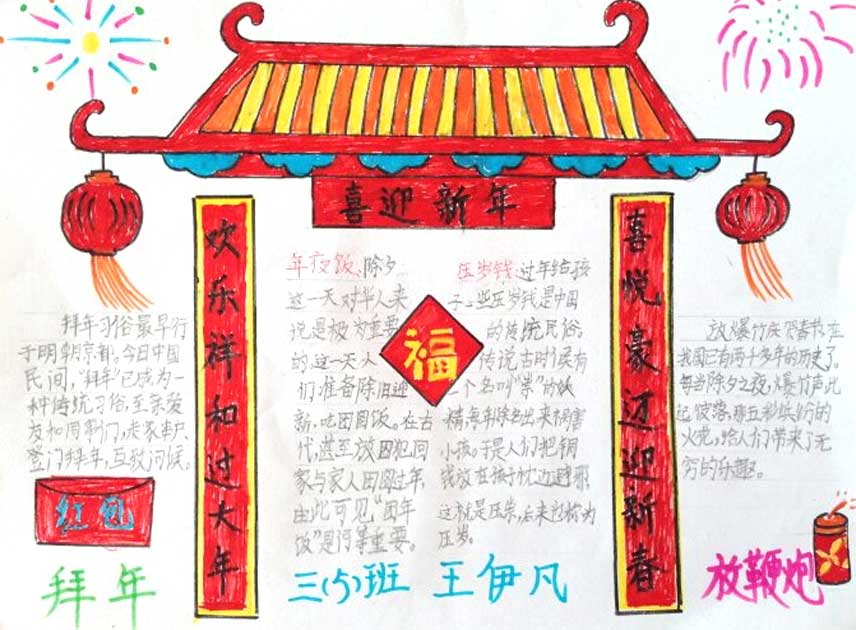 喜迎新年
欢乐祥和过大年
喜悦豪迈迎新春
拜年习俗最早行
于明朝京都。今日中国
民间,“拜年”已成为一
种传统习俗,至亲爱
友和同事们,走家串户
登门拜年,互致问候。
红包
拜年
年夜饭:除夕
这一天对华人来
说是极为重要
的。这一天人
们准备除旧迎
新,吃团圆饭。在古
代,甚至放囚犯回
家与家人团圆过年,
由此可见“团年
饭”是何等重要。
福
压岁钱:过年给孩
子一些压岁钱是中国
的传统民俗。
传说古时候有
一个名叫“祟”的妖
精,每年除夕出来祸害
小孩。于是人们把铜
钱放在孩子枕边避邪
这就是压祟,后来也称为
压岁。
三(5)班 王伊凡
放爆竹庆贺春节,在
我国已有两千多年的历史了。
每当除夕之夜,爆竹声此
起彼落,那五彩缤纷的
火花,给人们带来了无
穷的乐趣。
放鞭炮